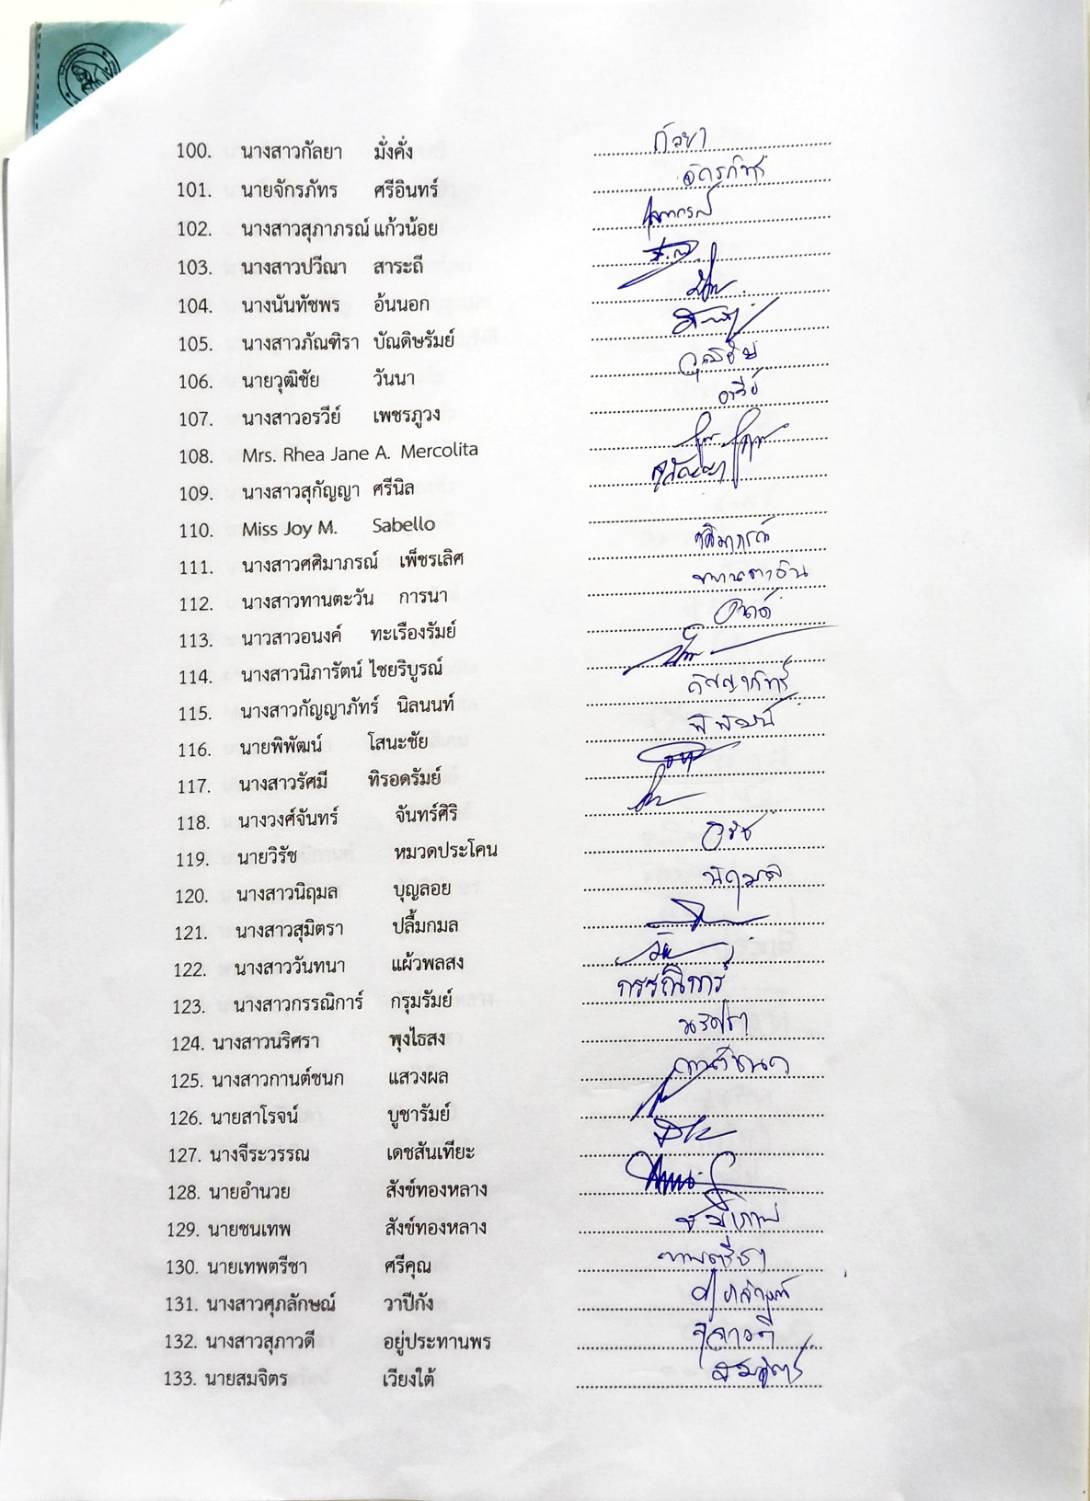 100. นางสาวกัลยา มั่งคั่ง กัลยา
101. นายจักรภัทร ศรีอินทร์ จักรภัทร
102. นางสาวสุภาภรณ์ แก้วน้อย
103. นางสาวปวีณา สาระถี
104. นางนันทัชพร อ้นนอก
105. นางสาวภัณฑิรา บัณดิษรัมย์
106. นายวุฒิชัย วันนา วุฒิชัย
107. นางสาวอรวีย์ เพชรภูวง อรวีย์
108. Mrs. Rhea Jane A. Mercolita
109. นางสาวสุกัญญา ศรีนิล สุกัญญา
110. Miss Joy M. Sabello
111. นางสาวศศิมาภรณ์ เพ็ชรเลิศ ศศิมาภรณ์
112. นางสาวทานตะวัน การนา ทานตะวัน
113. นาวสาวอนงค์ ทะเรืองรัมย์ อนงค์
114. นางสาวนิภารัตน์ ไชยริบูรณ์
115. นางสาวกัญญาภัทร์ นิลนนท์ กัญญาภัทร์
116. นายพิพัฒน์ โสนะชัย พิพัฒน์
117. นางสาวรัศมี ทิรอดรัมย์
118. นางวงศ์จันทร์ จันทร์ศิริ
119. นายวิรัช หมวดประโคน วิรัช
120. นางสาวนิฤมล บุญลอย นิฤมล
121. นางสาวสุมิตรา ปลื้มกมล
122. นางสาววันทนา แผ้วพลสง
123. นางสาวกรรณิการ์ กรุมรัมย์ กรรณิการ์
124. นางสาวนริศรา พุงไธสง นริศรา
125. นางสาวกานต์ชนก แสวงผล กานต์ชนก
126. นายสาโรจน์ บูชารัมย์
127. นางจีระวรรณ เดชสันเทียะ
128. นายอำนวย สังข์ทองหลาง
129. นายชนเทพ สังข์ทองหลาง
130. นายเทพตรีชา ศรีคุณ เทพตรีชา
131. นางสาวศุภลักษณ์ วาปีกัง ศุภลักษณ์
132. นางสาวสุภาวดี อยู่ประทานพร สุภาวดี
133. นายสมจิตร เวียงใต้ สมจิตร